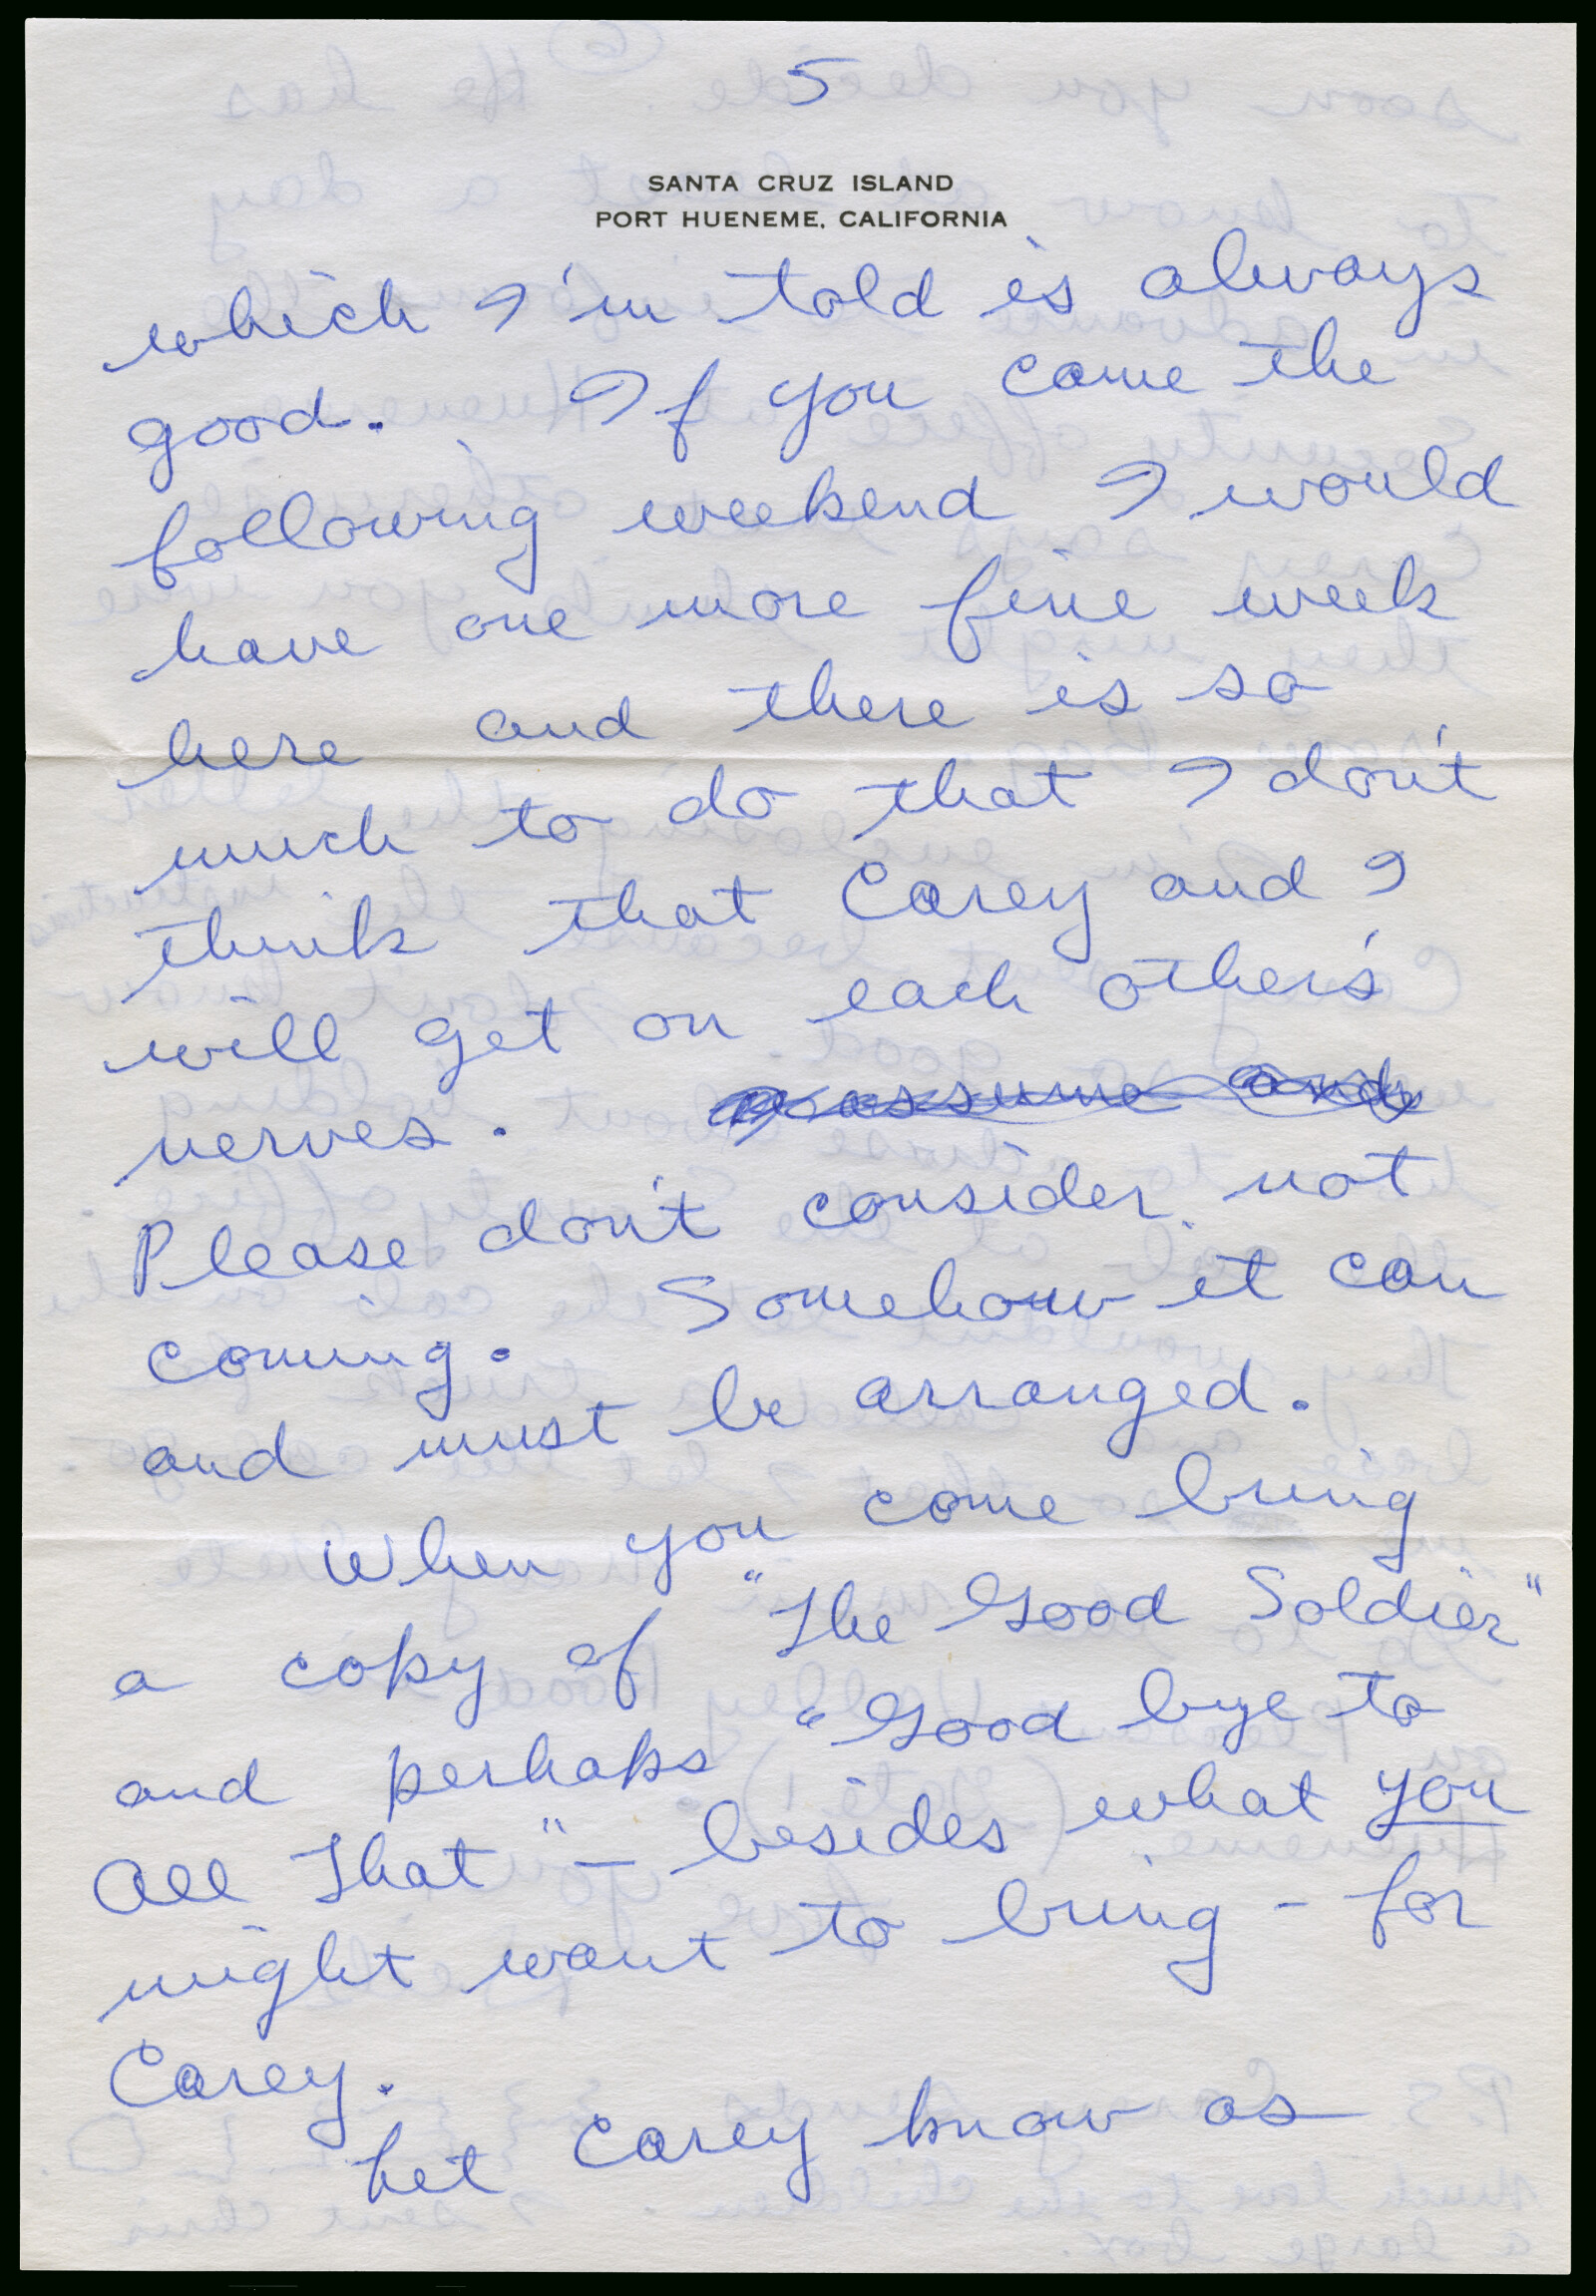 5
SANTA CRUZ ISLAND
PORT HUENEME, CALIFORNIA
which I'm told is always
good. If you came the
following weekend I would
have one more fine week
here and there is so
much to do that I don't
think that Carey and I
will get on each other's
nerves. assume and
Please don't consider not
coming. Somehow it can
and must be arranged.
When you come bring
a copy of "The Good Soldier"
and perhaps "Good bye to
All That" - besides what you
might want to bring - for
Carey.
Let Carey know as